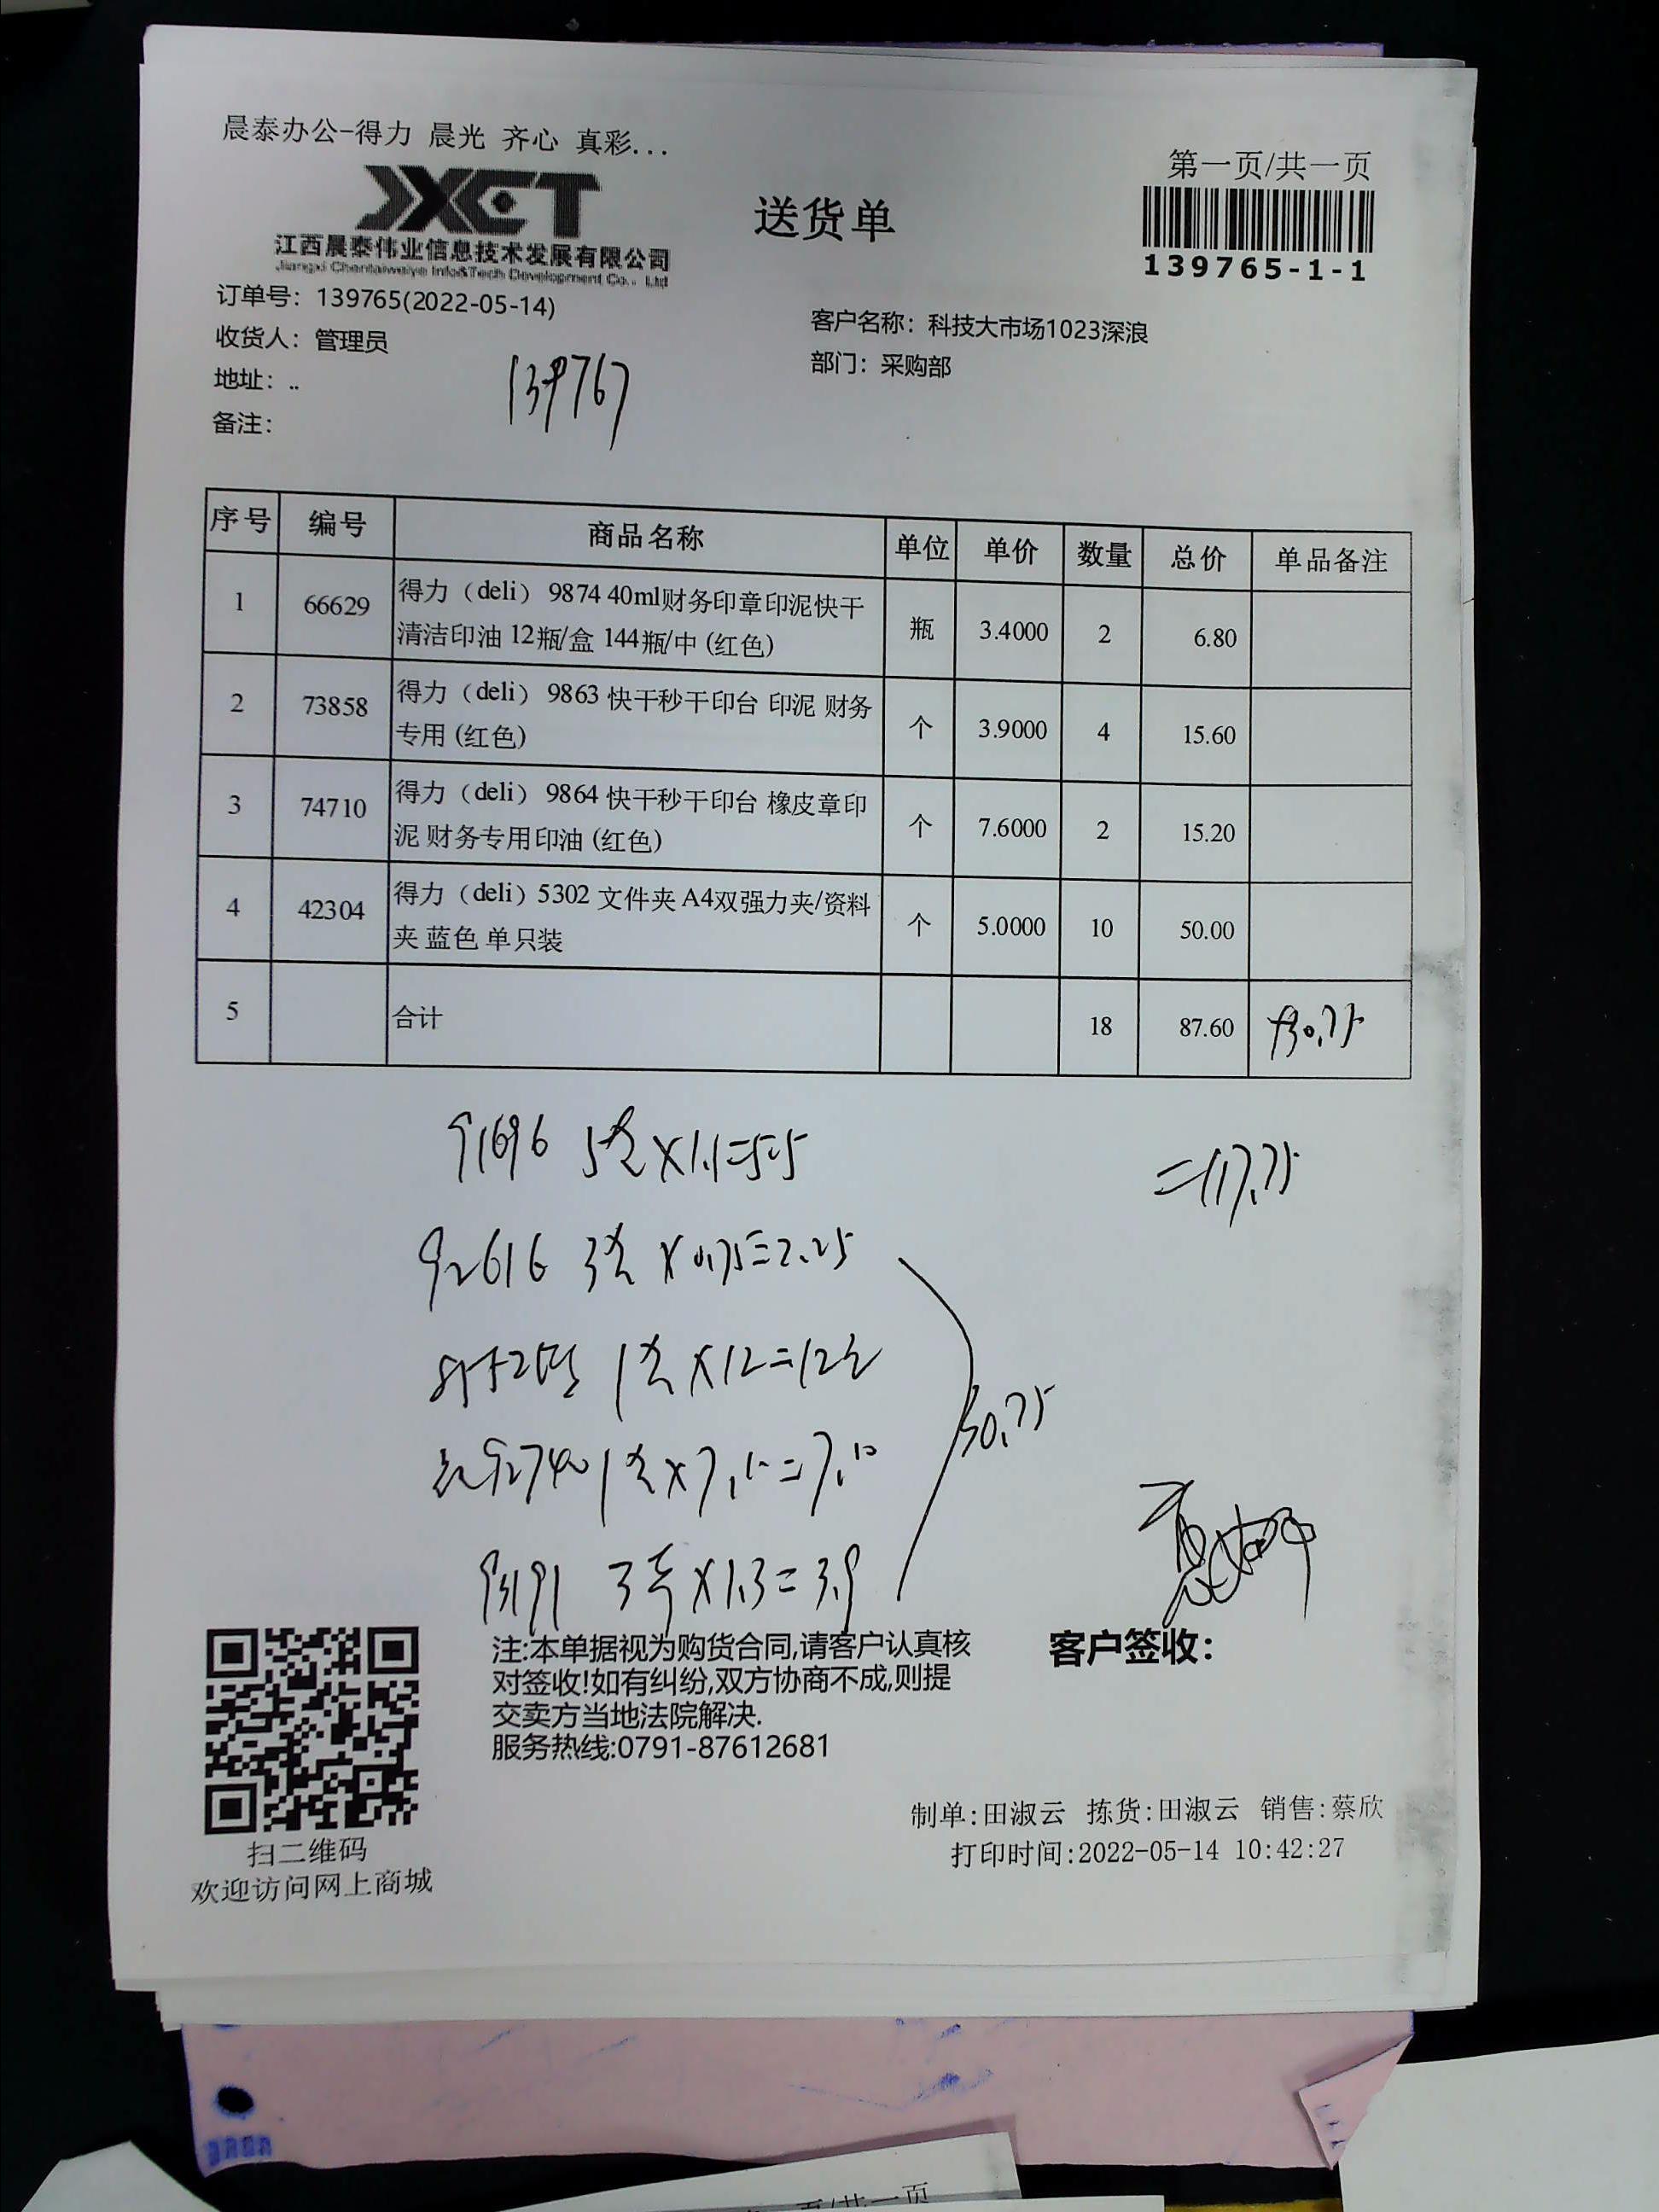 晨泰办公-得力 晨光 齐心 真彩...
JXCT
江西晨泰伟业信息技术发展有限公司
Jiangxi Chentaiweiye Info&Tech Development Co., Ltd
送货单
第一页/共一页
139765-1-1
订单号：139765(2022-05-14)
收货人：管理员
地址：..
备注：
客户名称：科技大市场1023深浪
部门：采购部
139767
序号 编号 商品名称 单位 单价 数量 总价 单品备注
1 66629 得力（deli）9874 40ml财务印章印泥快干
清洁印油 12瓶/盒 144瓶/中 (红色) 瓶 3.4000 2 6.80
2 73858 得力（deli）9863 快干秒干印台 印泥 财务
专用 (红色) 个 3.9000 4 15.60
3 74710 得力（deli）9864 快干秒干印台 橡皮章印
泥 财务专用印油 (红色) 个 7.6000 2 15.20
4 42304 得力（deli）5302 文件夹 A4双强力夹/资料
夹 蓝色 单只装 个 5.0000 10 50.00
5 合计 18 87.60 +30.75
91696 5 ×1.1=5.5
=117.75
92616 3 ×0.75=2.25
1 ×12=12
30.75
92740 1 ×7.10=7.10
93191 3 ×1.3=3.9
注:本单据视为购货合同,请客户认真核
对签收!如有纠纷,双方协商不成,则提
交卖方当地法院解决.
服务热线:0791-87612681
客户签收：
扫二维码
欢迎访问网上商城
制单:田淑云 拣货:田淑云 销售:蔡欣
打印时间:2022-05-14 10:42:27